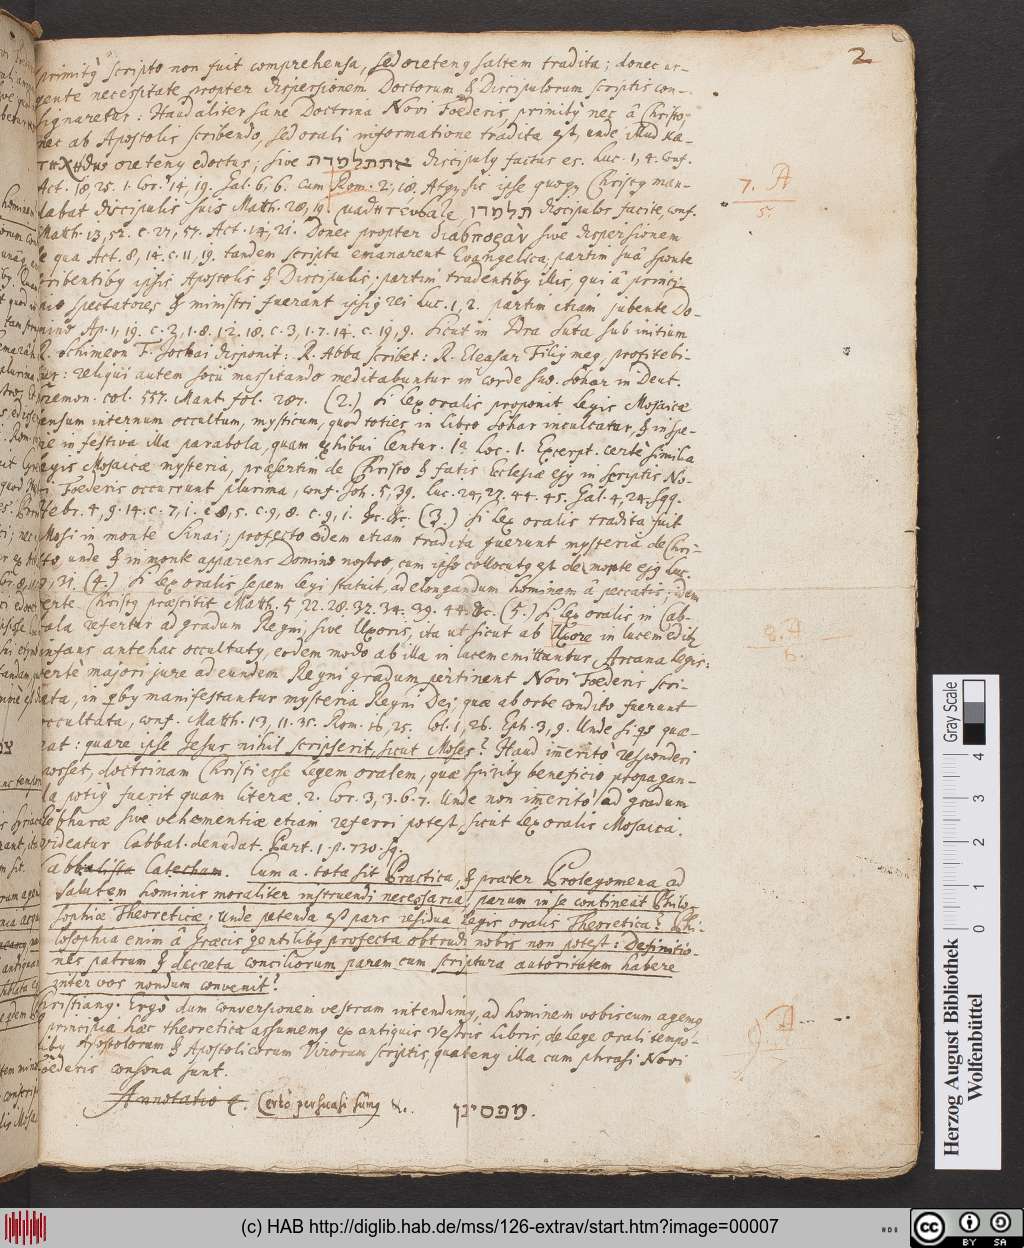 2
primitq scripto non fuit comprehensa, sed oretenq saltem tradita; donec ur-
gente necessitate propter dispersionem Doctorum & Discipulorum scriptis con-
signaretur: Haud aliter sane Doctrina Novi Foederis, primitq nec â Christo,
nec ab Apostolis scribendo, sed orali informatione tradita est, unde illud κα-
oretenq edoctus; sive אתתלמדת discipulq factus es. Luc. 1, 4. Conf.
Act. 18, 25. 1. Cor. 14, 19. Gal. 6, 6. cum Rom. 2, 18. Atq, sic ipse quoq, Christq man-
dabat discipulis suis Matth. 28, 19. μαθητέυσαϊε, תלמדו discipulos facite, conf.
Matth. 13, 52. c. 27, 57. Act. 14, 21. Donec propter διασποραν sive dispersionem
de qua Act. 8, 14. c. 11, 19. tandem scripta emanarent Evangelica, partim sua sponte
scribentibq ipsis Apostolis & Discipulis: partim tradentibq illis, qui â princi-
pio spectatores & ministri fuerant ipsiq rei Luc. 1, 2. partim etiam jubente Do-
mino Ap. 1, 19. c. 2, 1. 8. 12. 18. c. 3, 1. 7. 14. c. 19, 9. Sicut in Idra Suta sub initium
R. Schimeon F. Jochai disponit: R. Abba scribet: R. Eleasar Filiq meq, profitebi-
tur: reliqui autem socii mussitando meditabuntur in corde suo. Sohar in Deut.
Cremon. col. 557. Mant fol. 287. (2.) Si Lex oralis proponit Legis Mosaicæ
sensum internum occultum, mysticum, quod toties in libro Sohar inculcatur, & in spe-
cie in festiva illa parabola, quam exhibui Centur. 1a Loc. 1. Excerpt. certè similia
Legis Mosaicæ mysteria, præsertim de Christo & fatis Ecclesiæ ejq in scriptis No-
vi Foederis occurrunt plurima, conf. Joh. 5, 39. Luc. 24, 27. 44. 45. Gal. 4, 24. sqq.
Hebr. 4, 9. 14. c. 7, 1. c. 8, 5. c. 9, 8. c. 9, 1. &c. &c. (3.) Si Lex oralis tradita fuit
Mosi in monte Sinai; profecto eidem etiam tradita fuerunt mysteria de Chri-
sto unde & in monte apparens Domino nostro, cum ipso collocutq est de morte ejq Luc.
9, 31. (4.) Si Lex oralis sepem legi statuit, ad elongandum hominem â peccatis; idem
certe Christq præstitit Matth. 5, 22. 28. 32. 34. 39. 44. &c. (5.) Si Lex oralis, in Cab-
bala refertur ad gradum Regni, sive Uxoris, ita ut sicut ab Uxore in lucem editq
infans antehac occultatq, eodem modo ab illa in lucem emittantur Arcana legis:
certè majori jure ad eundem Regni gradum pertinent Novi Foederis scri-
pta, in qbq manifestantur mysteria Regni Dei, quæ ab orbe condito fuerunt
occultata, conf. Matth. 13, 11. 35. Rom. 16, 25. Col. 1, 26. Eph. 3, 9. Unde si qs quæ-
rat: quare ipse Jesus nihil scripserit, sicut Moses? Haud immeritò responderi
posset, doctrinam Christi esse Legem oralem, quæ spiritq beneficio propagan-
da potiq fuerit quam literæ. 2. Cor. 3, 3. 6. 7. Unde non immeritò ad gradum
Gebhuræ sive vehementiæ etiam referri potest, sicut Lex oralis Mosaica.
videatur Cabbal. denudat. Part. 1. p. 730. sq.
Cabbalista Catechum. Cum a. tota sit Practica, & præter Prolegomena ad
salutem hominis moraliter instruendi necessaria, parum in se contineat Philo-
sophiæ Theoreticæ: Unde petenda est pars residua Legis oralis Theoretica? Phi-
losophia enim â Græcis gentilibq profecta obtrudi nobis non potest: Definitio-
nes patrum & decreta conciliorum parem cum scriptura autoritatem habere
inter vos nondum convenit?
Christianq. Ergò dum conversionem vestram intendimq, ad hominem vobiscum agemq
& principia hæc theoretica assumemq ex antiquis Vestris Libris, de lege orali tempo-
ribq Apostolorum & Apostolicorum Virorum scriptis, quatenq illa cum phrasi Novi
Foederis consona sunt.
Annotatio 4. Certò persuasi sumq &c. מפסיקן.
7. A
5.
8. A
6.
Gray Scale
0 1 2 3 4
Herzog August Bibliothek
Wolfenbüttel
(c) HAB http://diglib.hab.de/mss/126-extrav/start.htm?image=00007
cc BY SA